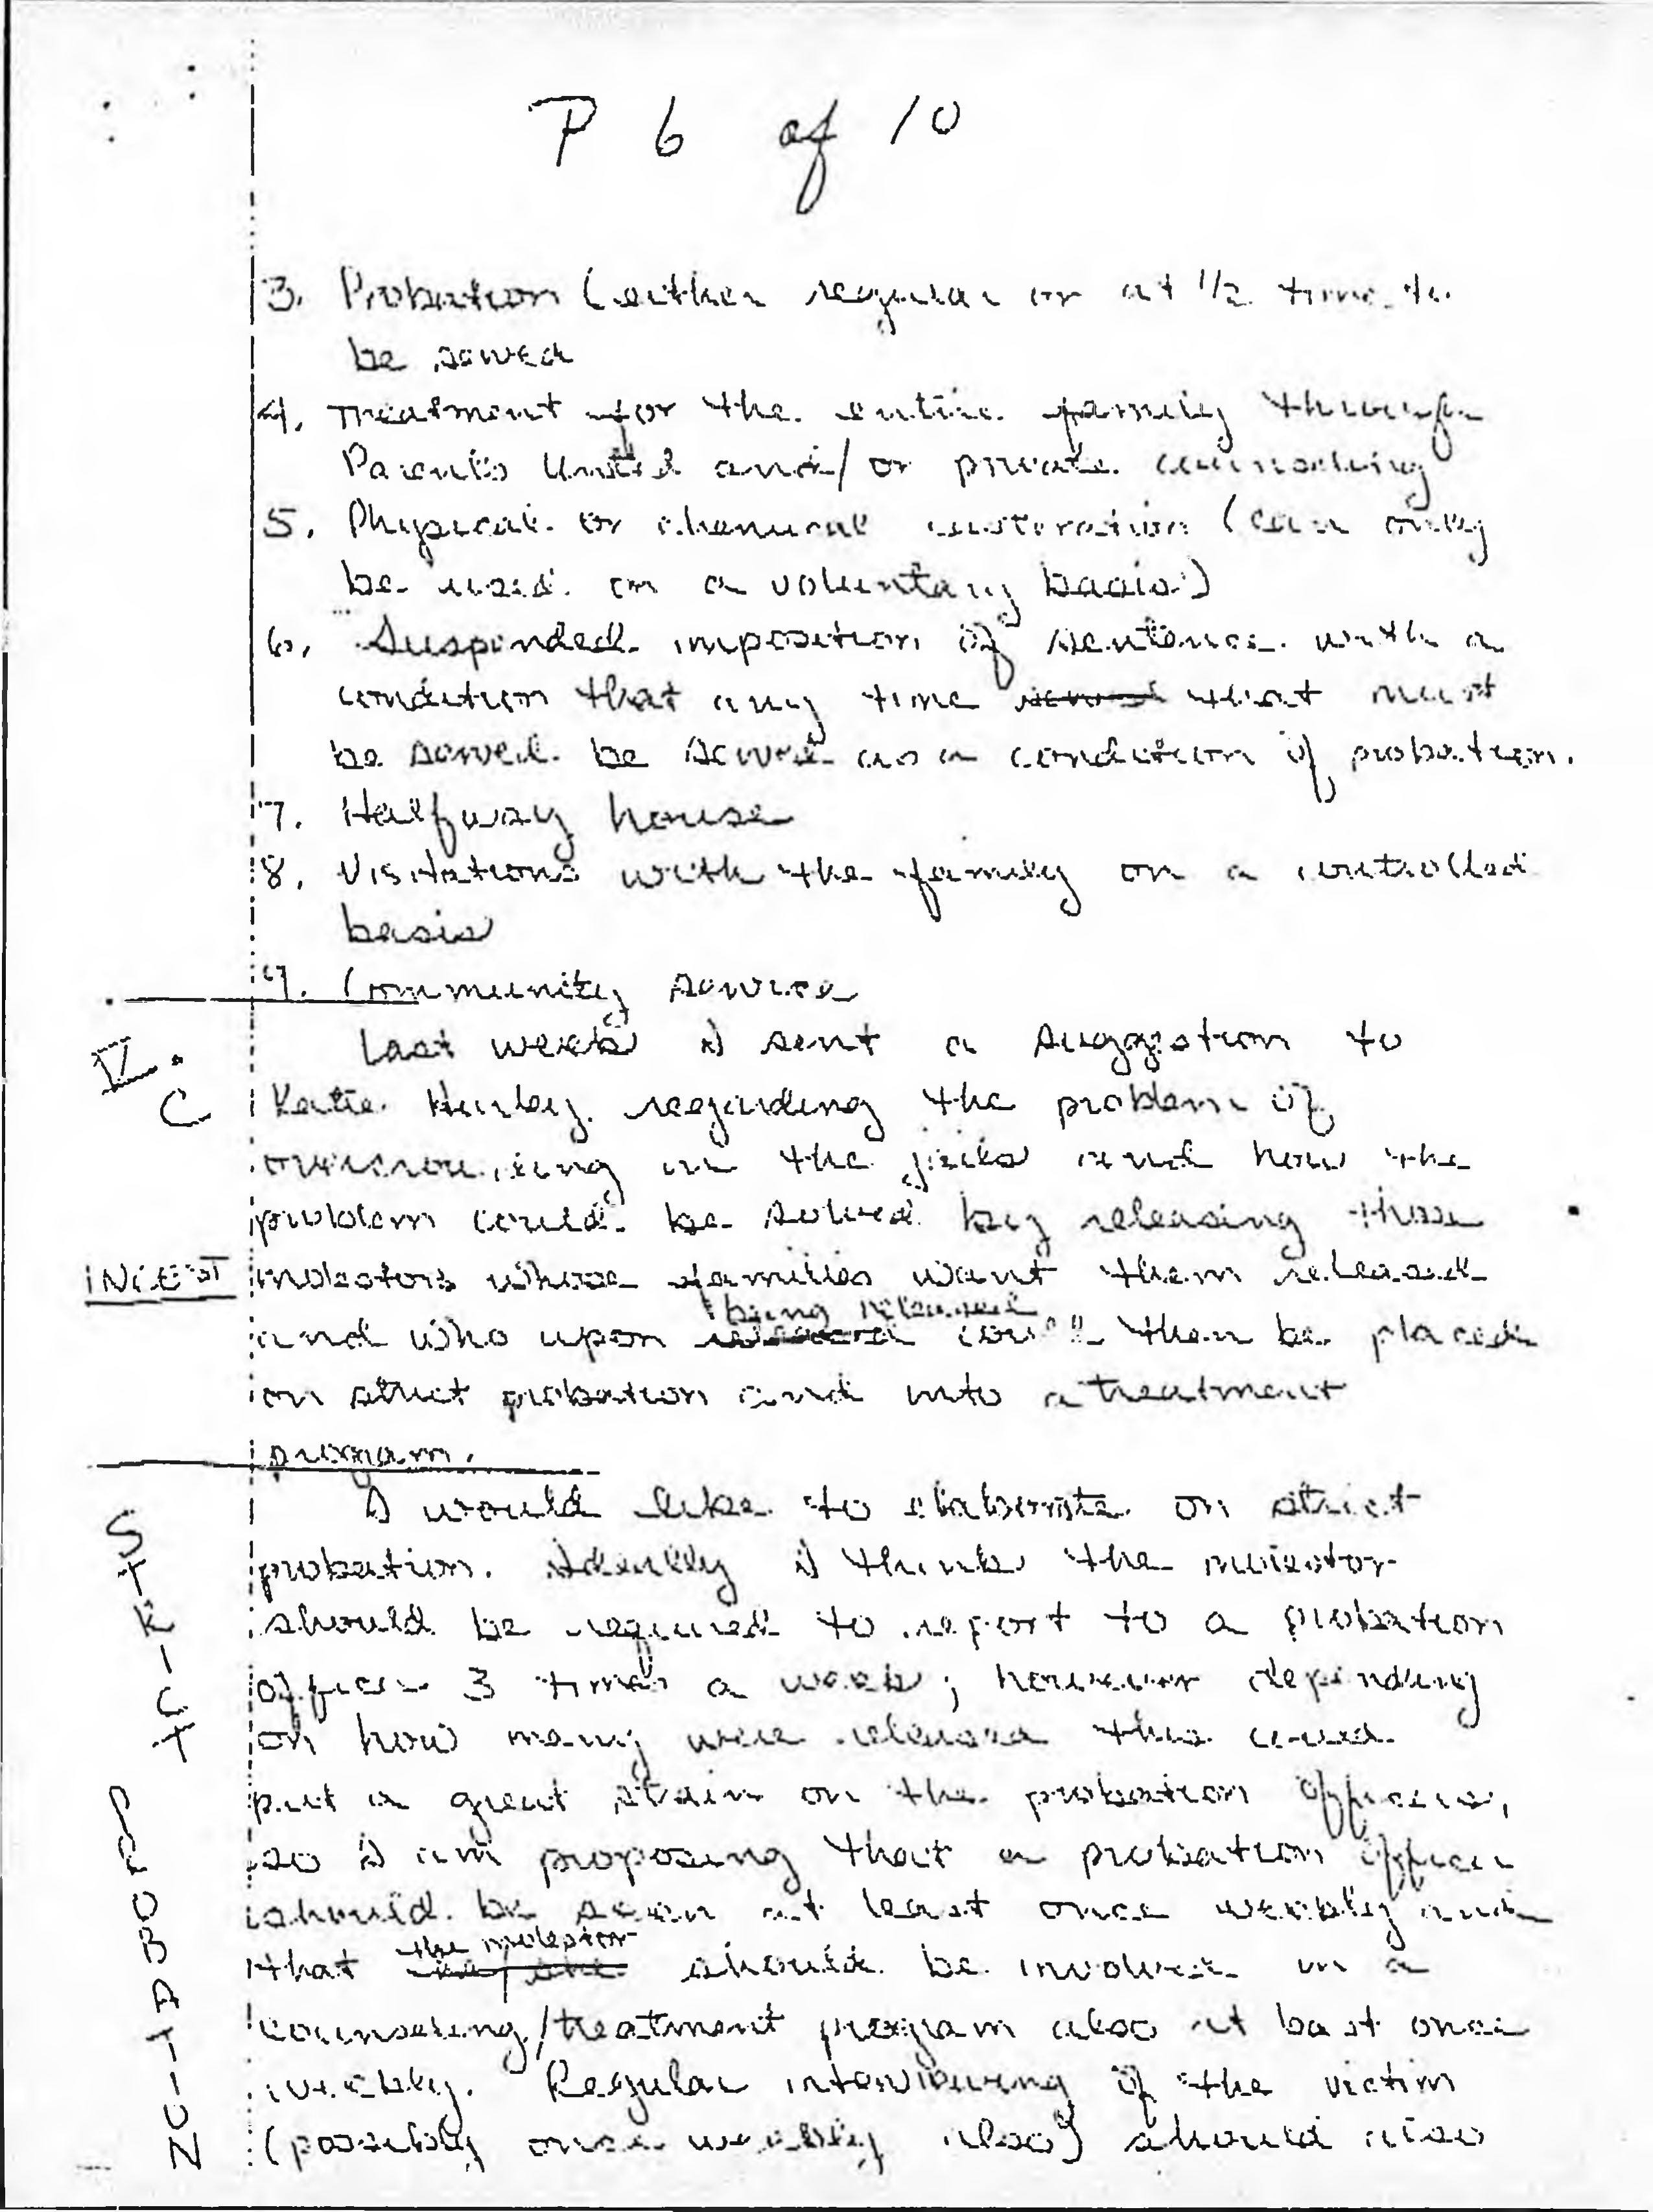 P 6 of 10
3. Probation (either regular or at 1/2 time to
be served
4. Treatment for the entire family through
Parents United and/or private counseling
5. Physical or chemical casteration (can only
be used on a voluntary basis)
6. Suspended imposition of sentence with a
condition that any time served that must
be served be served as a condition of probation.
7. Halfway house
8. Visitations with the family on a controlled
basis
9. Community service
V.
C
Last week I sent a suggestion to
Katie Hurley regarding the problem of
overcrowding in the jails and how the
problem could be solved by releasing those
INCEST molestors whose families want them released
being released
and who upon released could then be placed
on strict probation and into a treatment
program.
STRICT PROBATION
I would like to elaborate on strict
probation. Ideally I think the molestor
should be required to report to a probation
officer 3 times a week; however depending
on how many were released this could
put a great strain on the probation officers,
so I am proposing that a probation officer
should be seen at least once weekly and
the molestor
that should be involved in a
counseling/treatment program also at least once
weekly. Regular interviewing of the victim
(possibly once weekly also) should also